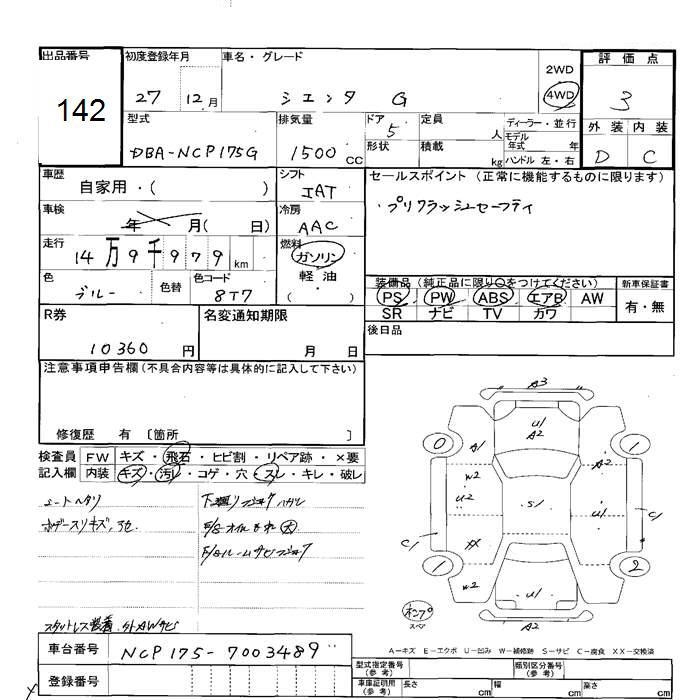 出品番号 142
初度登録年月 27 12月
車名・グレード シエンタ G
2WD
4WD
評価点 3
外装 内装
D C
型式 DBA-NCP175G
排気量 1500 CC
ドア 5
形状
定員 人
積載 kg
ディーラー・並行
モデル年式 年
ハンドル 左・右
車歴 自家用・( )
シフト IAT
セールスポイント (正常に機能するものに限ります)
・プリクラッシュセーフティ
車検 年 月( 日)
冷房 AAC
走行 14万9千979 km
燃料 ガソリン
軽油
( )
色 ブルー
色替
色コード 8T7
装備品 (純正品に限り○をつけてください)
PS PW ABS エアB AW
SR ナビ TV カワ
新車保証書
有・無
R券 10360 円
名変通知期限 月 日
後日品
注意事項申告欄(不具合内容等は具体的に記入して下さい)
修復歴 有 〔箇所 〕
検査員記入欄
FW キズ・飛石・ヒビ割・リペア跡・×要
内装 キズ・汚レ・コゲ・穴・スレ・キレ・破レ
シートヘタリ
下廻りフジョク ハガレ
スタットレス装着 外AWサビ
A3
U1
A2
0
A1
1
A2
W2
U2
S1
U1
C1
C1
XX
1
2
W2
U1
A2
ホンプ
スペア
A=キズ E=エクボ U=凹み W=補修跡 S=サビ C=腐食 XX=交換済
車台番号 NCP175-7003489
登録番号
型式指定番号 (参考)
類別区分番号 (参考)
車庫証明用 (参考) 長さ cm 幅 cm 高さ cm